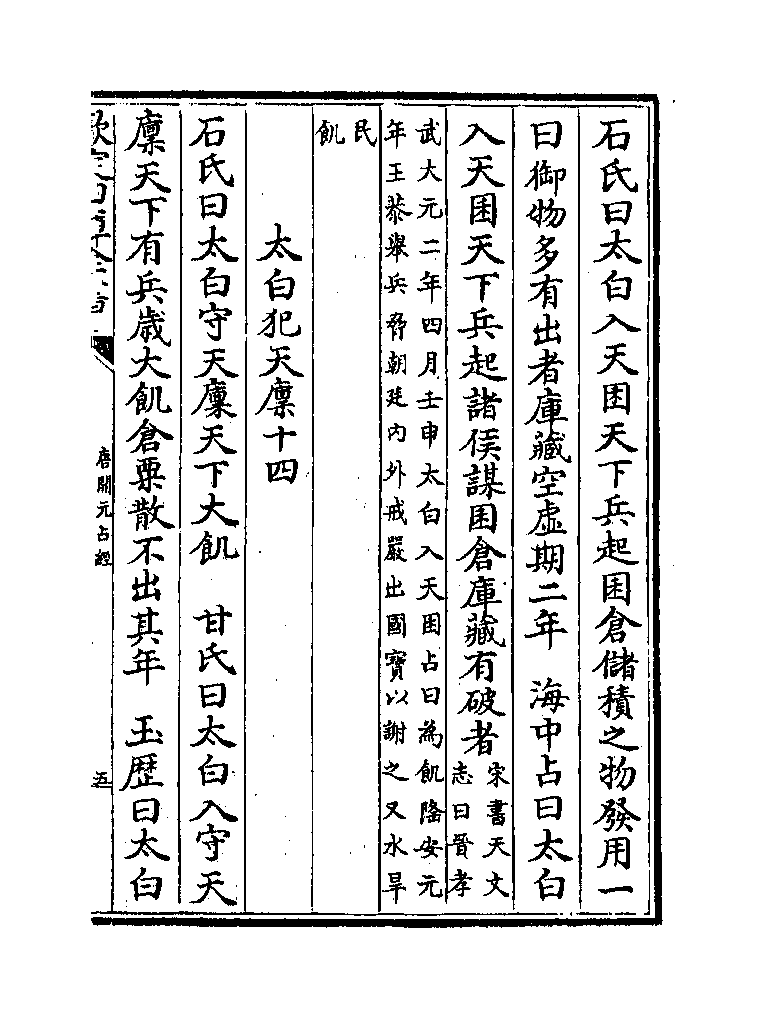 石氏曰太白入天囷天下兵起囷倉儲積之物發用一
曰御物多有出者庫藏空虛期二年　海中占曰太白
入天囷天下兵起諸侯謀囷倉庫藏有破者
宋書天文
志曰晉孝
武大元二年四月壬申太白入天囷占曰為飢隆安元
年王恭舉兵脅朝廷内外戒嚴出國寳以謝之又水旱
民
飢
太白犯天廩十四
石氏曰太白守天廩天下大飢　甘氏曰太白入守天
廩天下有兵歳大飢倉粟散不出其年　玉歴曰太白
唐開元占經
五